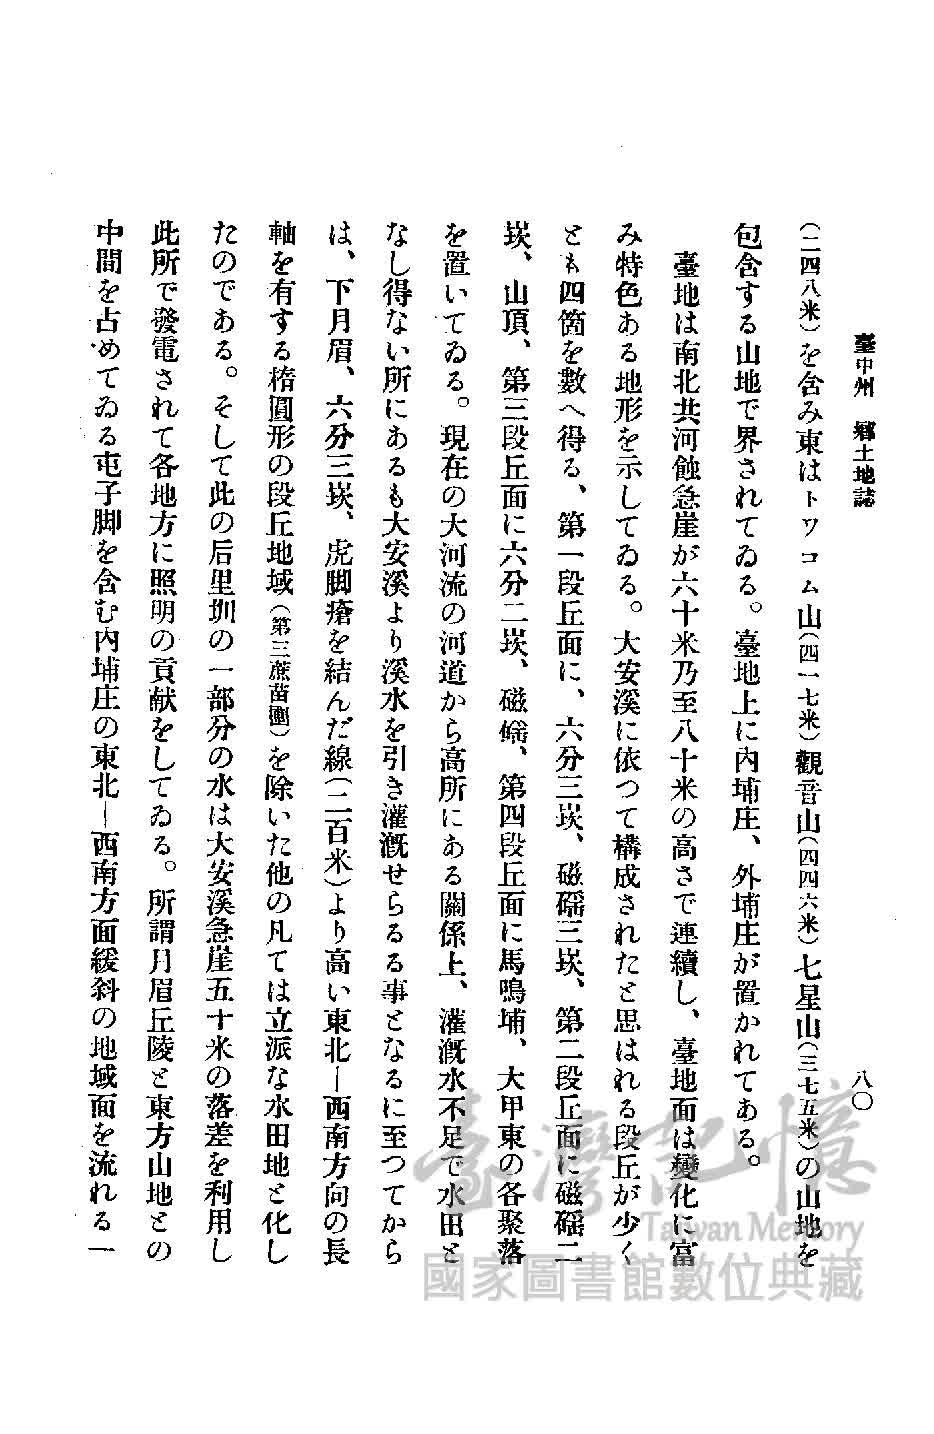 臺中州　鄉土地誌
八〇
(二四八米)を含み東はトワコム山(四一七米)觀音山(四四六米)七星山(三七五米)の山地を
包含する山地で界されてゐる。臺地上に內埔庄、外埔庄が置かれてある。
臺地は南北共河蝕急崖が六十米乃至八十米の高さで連續し、臺地面は變化に富
み特色ある地形を示してゐる。大安溪に依つて構成されたと思はれる段丘が少く
とも四箇を數へ得る、第一段丘面に、六分三崁、磁磘三崁、第二段丘面に磁磘二
崁、山頂、第三段丘面に六分二崁、磁磘、第四段丘面に馬鳴埔、大甲東の各聚落
を置いてゐる。現在の大河流の河道から高所にある關係上、灌漑水不足で水田と
なし得ない所にあるも大安溪より溪水を引き灌漑せらるる事となるに至つてから
は、下月眉、六分三崁、虎脚瘡を結んだ線(二百米)より高い東北—西南方向の長
軸を有する楕圓形の段丘地域(第三蔗苗圃)を除いた他の凡ては立派な水田地と化し
たのである。そして此の后里圳の一部分の水は大安溪急崖五十米の落差を利用し
此所で發電されて各地方に照明の貢献をしてゐる。所謂月眉丘陵と東方山地との
中間を占めてゐる屯子脚を含む內埔庄の東北—西南方面緩斜の地域面を流れる一
臺灣記憶
Taiwan Memory
國家圖書館數位典藏